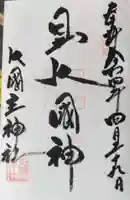 奉拝 令和四年四月二十九日
大國神
大國主神社